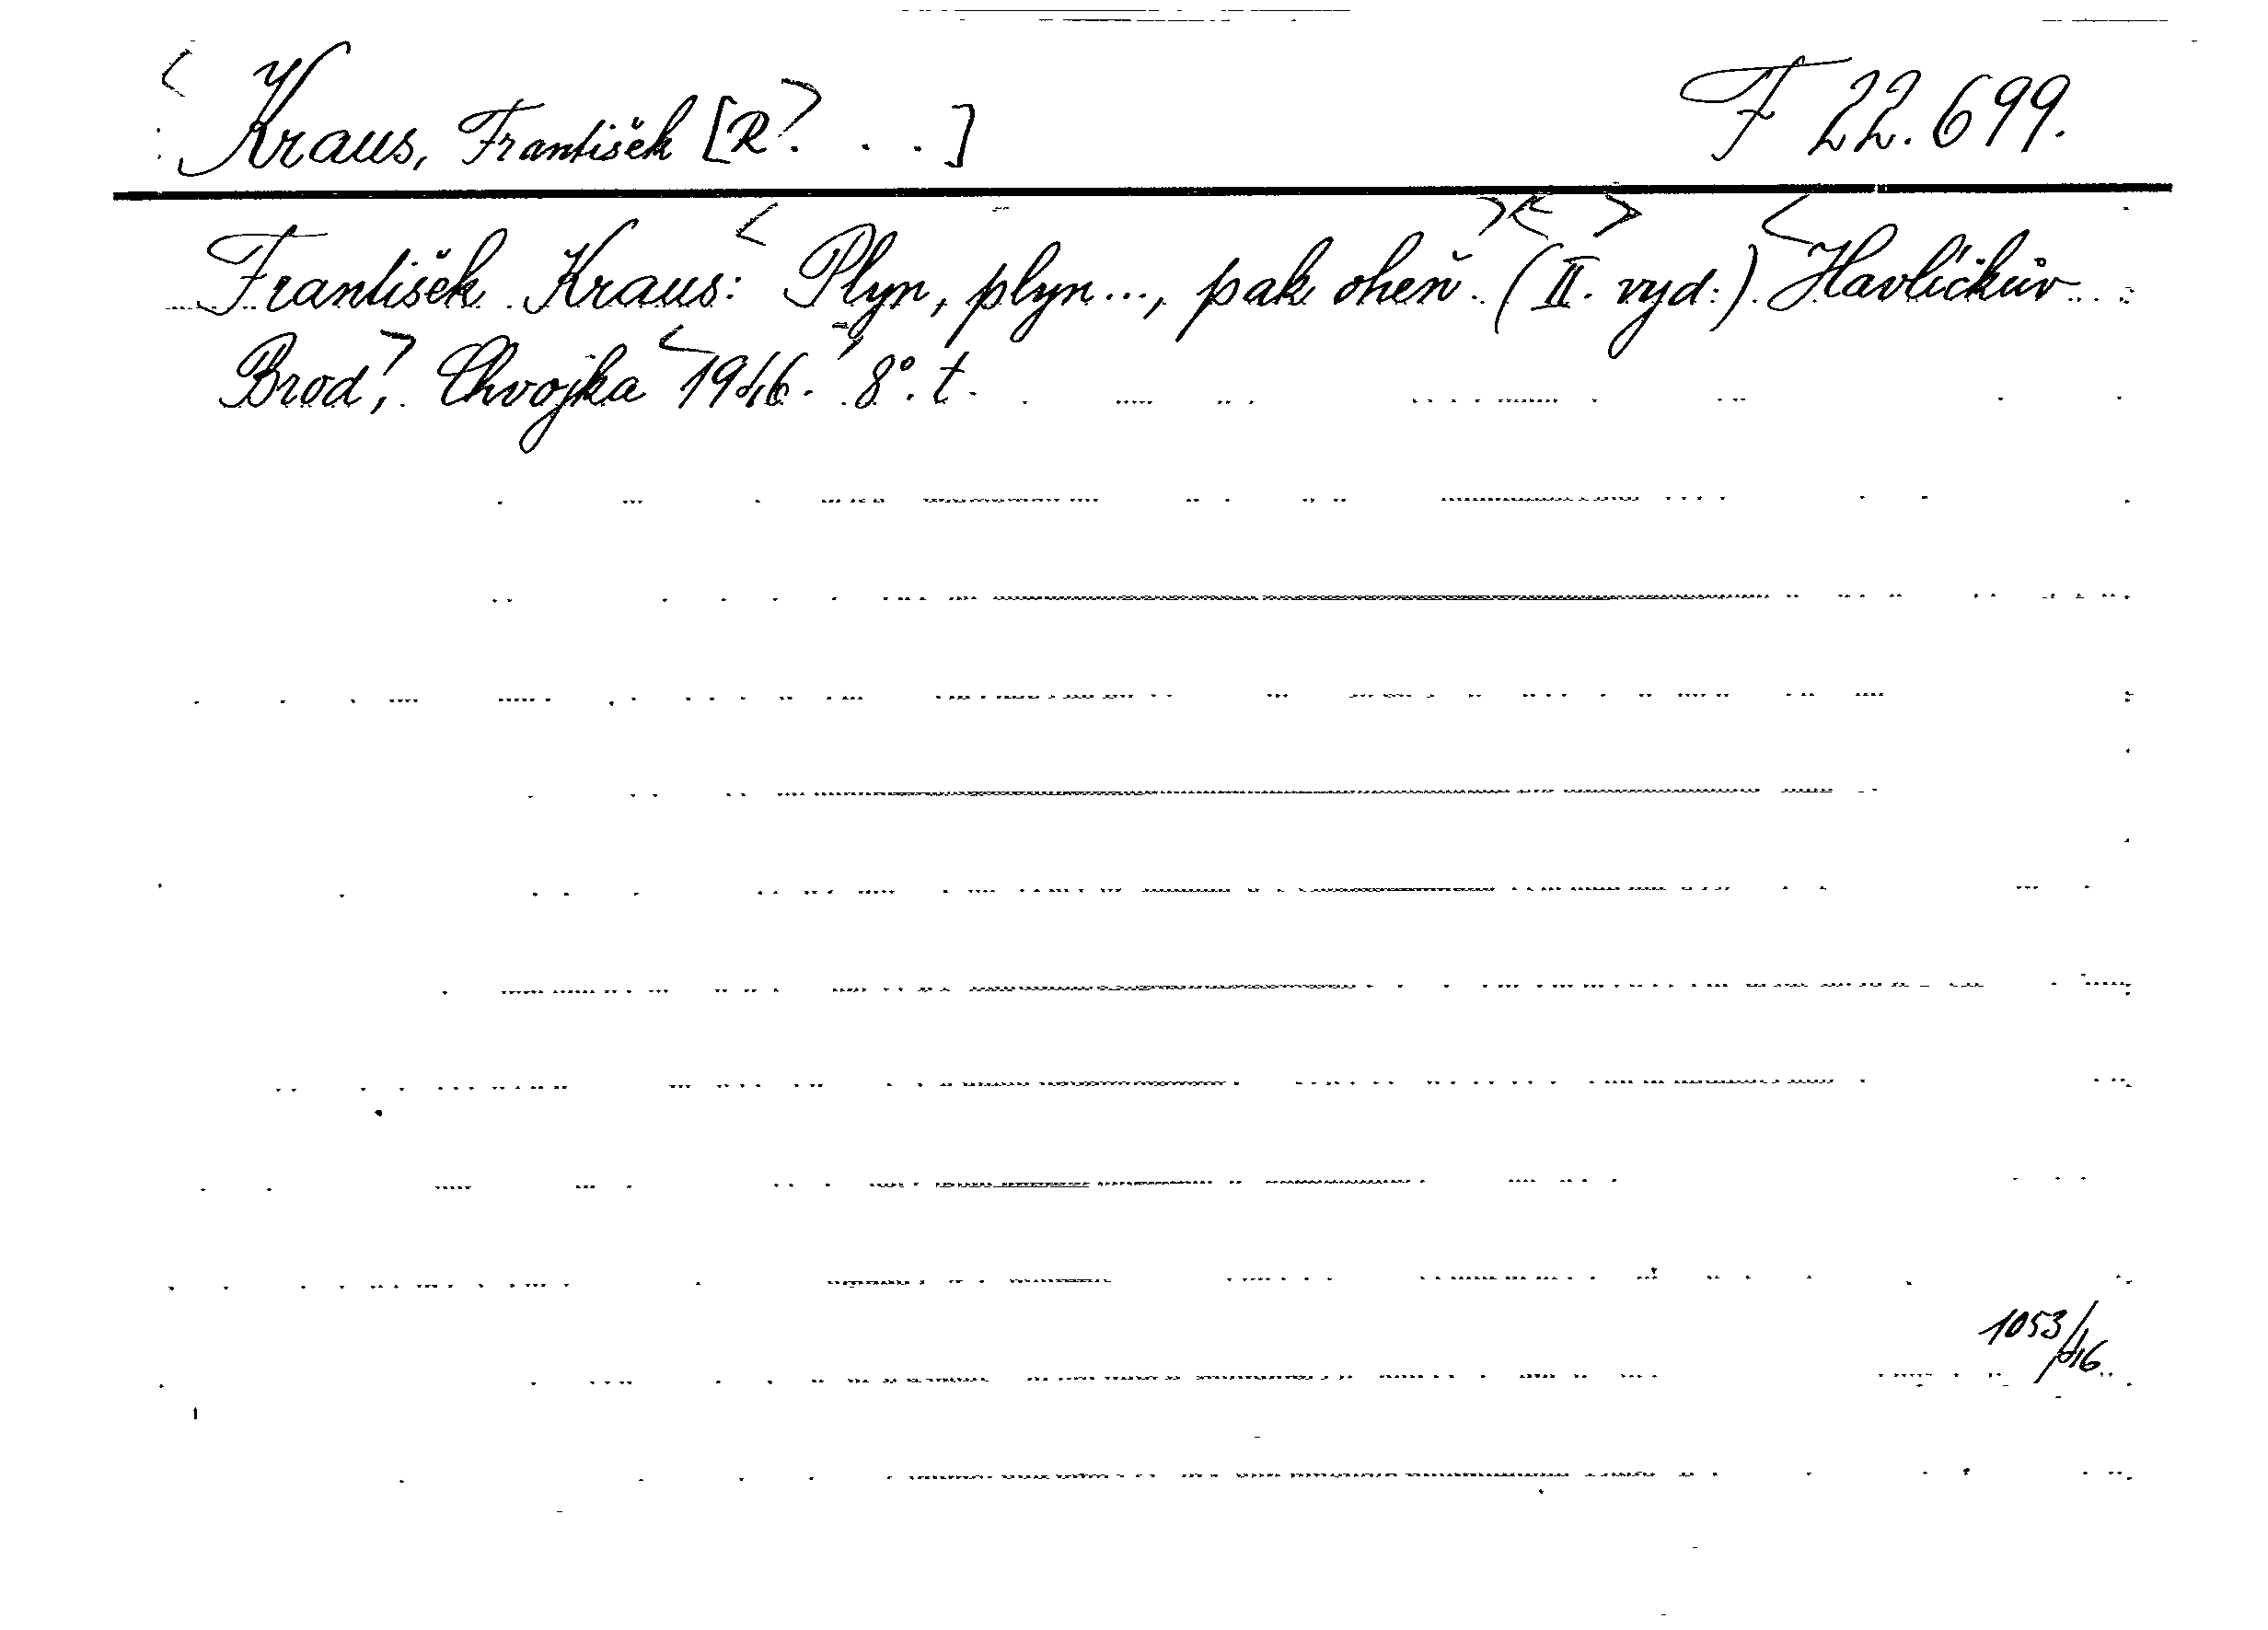 Kraus, František [R? . . ] F 22.699.
František Kraus: Plyn, plyn..., pak oheň. (II. vyd.). Havlíčkův
Brod, Chvojka 1946. 8°. t.
1053/46.